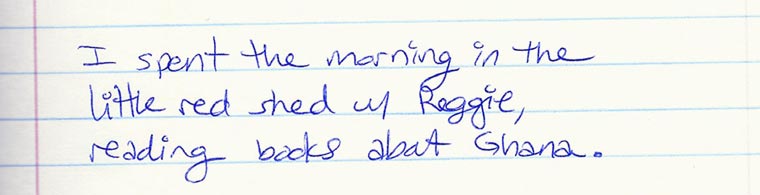 I spent the morning in the
little red shed w/ Reggie,
reading books about Ghana.